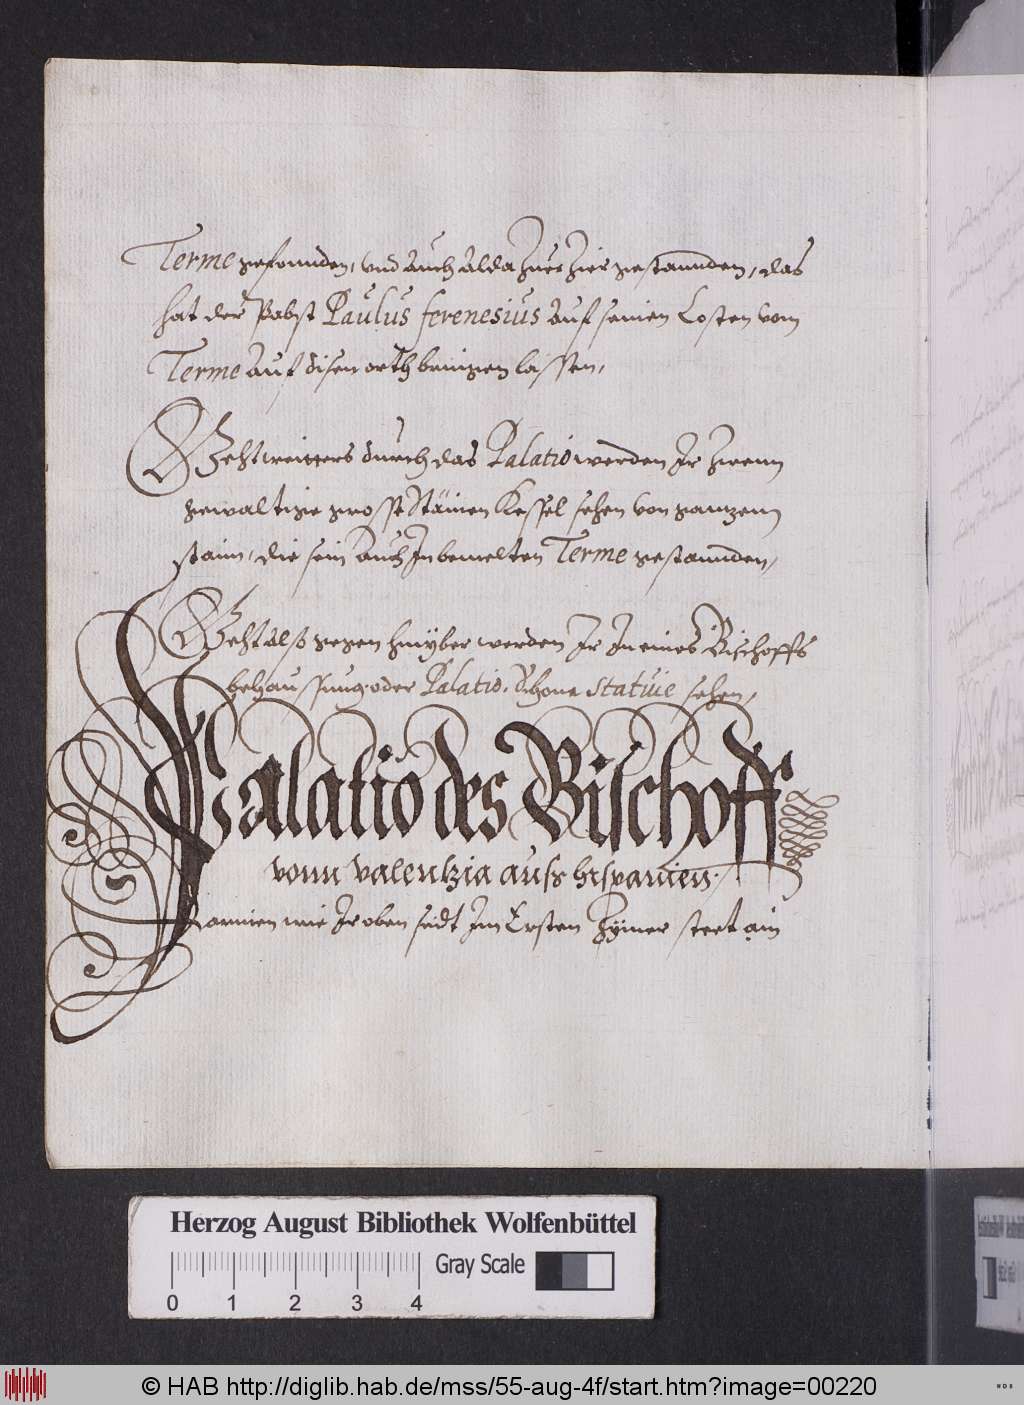 Terme gefonnden, vnd auch alda Zuer Zier gestannden, das
hat der Pabst Paulus ferenesius auf seinen Costen vom
Terme auf disen orth bringen lassen,
Geht weitters durch das Palatio werden Ir Zwenn
gewaltige grosse Stainen Kessel sehen von gantzem
stain, die sein auch In bemelten Terme gestannden,
Geht alß gegen hinyber werden Ir In eines Bischoffs
behaussung oder Palatio, schone statuie sehen,
Palatio des Bischoff
vonn valentzia auss hispanien.
Darinen wie Ir oben seidt Im Ersten Zymer steet ain
Herzog August Bibliothek Wolfenbüttel
Gray Scale
0 1 2 3 4
© HAB http://diglib.hab.de/mss/55-aug-4f/start.htm?image=00220